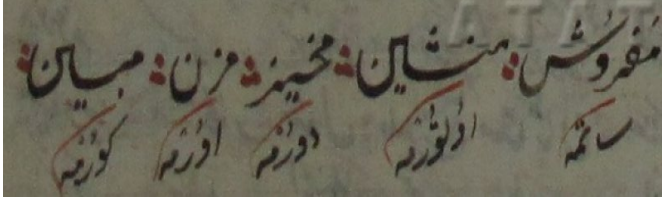 مفروش منشین مخیز مزن مبین
ساتمه اولتورمه دورمه اورمه كورمه